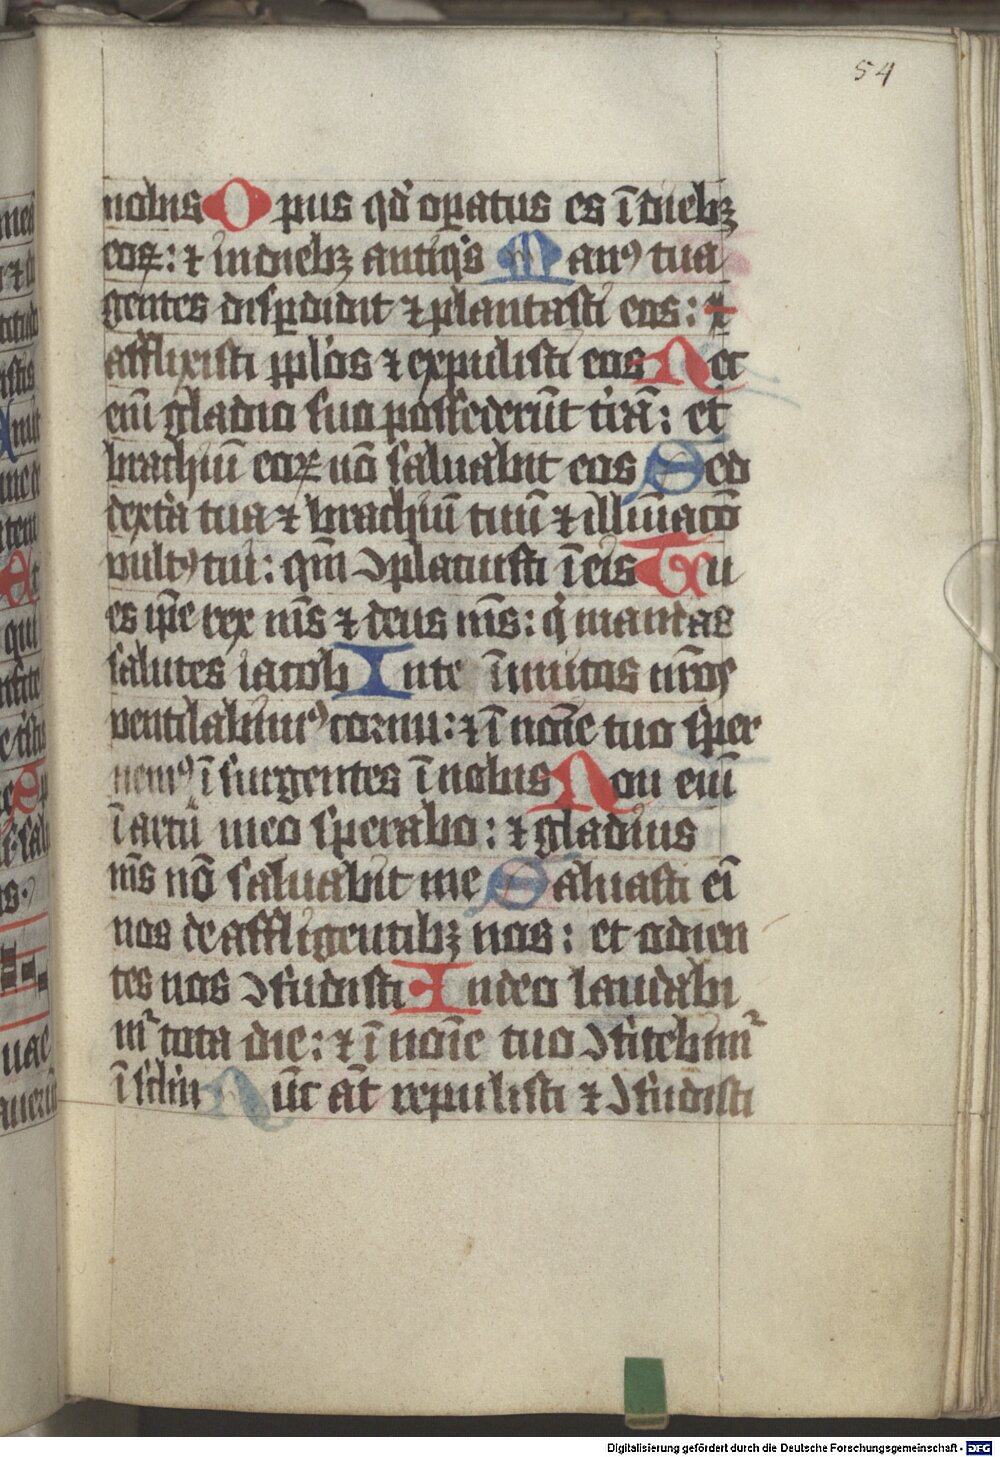 54
nobis Opus qd̄ oꝑatus es ī diebꝫ
eoꝝ: ⁊ in diebꝫ antiqͥs Manꝰ tua
gentes disꝑdidit ⁊ plantasti eos: ⁊
afflixisti ppl̓os ⁊ expulisti eos Nec
eni̅ gladio suo possederūt t̓rā: et
brachiū eoꝝ nō saluabit eos Sed
dext̓a tua ⁊ brachiū tuū ⁊ illūiacō
vultꝰ tui: qm̅ ↄplacuisti ī eis Tu
es ip̅e rex nr̅s ⁊ deus nr̅s: qͥ mandas
salutes iacob In te īimicos nr̅os
ventilabimꝰ cornu: ⁊ ī noīe tuo sper
nemꝰ īsurgentes ī nobis Non eni̅
ī arcū meo sperabo: ⁊ gladius
m̅s nō saluabit me Saluasti ei̅
nos de affligentibꝫ nos: et odien
tes nos ↄfudisti In deo laudabi
mͬ tota die: ⁊ ī noīe tuo ↄfitebimͬ
ī sc̅lm Nūc at̅ repulisti ⁊ ↄfudisti
Digitalisierung gefördert durch die Deutsche Forschungsgemeinschaft - DFG